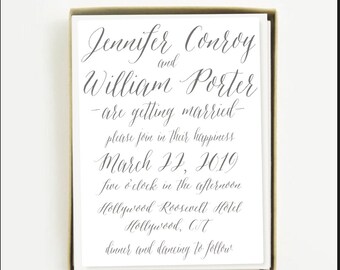 Jennifer Conroy
and
William Porter
-are getting married-
please join in their happiness
March 22, 2019
five o'clock in the afternoon
Hollywood Roosevelt Hotel
Hollywood, CT
dinner and dancing to follow